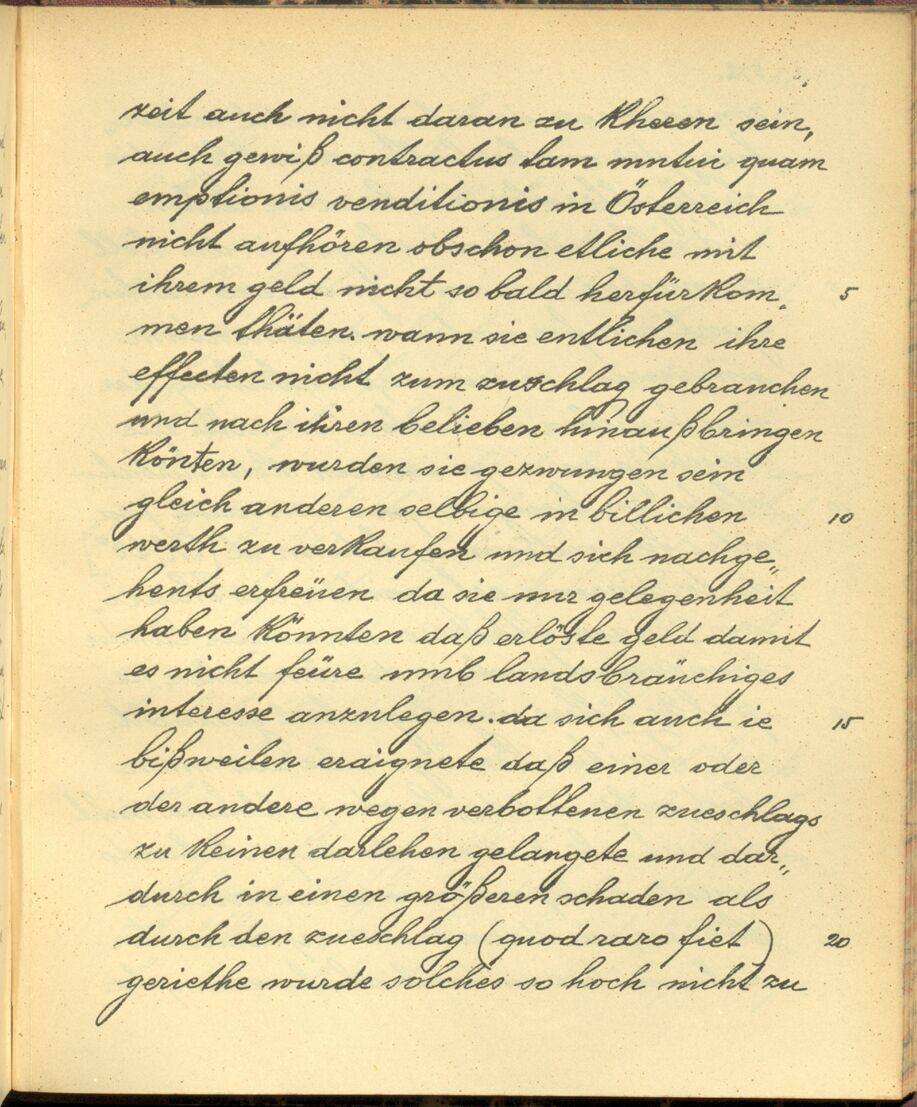 zeit auch nicht daran zu Kheren sein,
auch gewiß contractus tam mutui quam
emptionis venditionis in Österreich
nicht aufhören obschon etliche mit
ihrem geld nicht so bald herfürkom„ 5
men thäten. wann sie entlichen ihre
effecten nicht zum zuschlag gebrauchen
und nach ihren belieben hinaußbringen
könten, wurden sie gezwungen sein
gleich anderen selbige in billichen 10
werth zu verkaufen und sich nachge„
hents erfreüen da sie nur gelegenheit
haben könnten daß erlöste geld damit
es nicht feüre umb landsbräuchiges
interesse anzulegen. da sich auch ie 15
bißweilen eraignete daß einer oder
der andere wegen verbottenen zueschlags
zu keinen darlehen gelangete und dar„
durch in einen größeren schaden als
durch den zueschlag (quod raro fiet) 20
geriethe wurde solches so hoch nicht zu